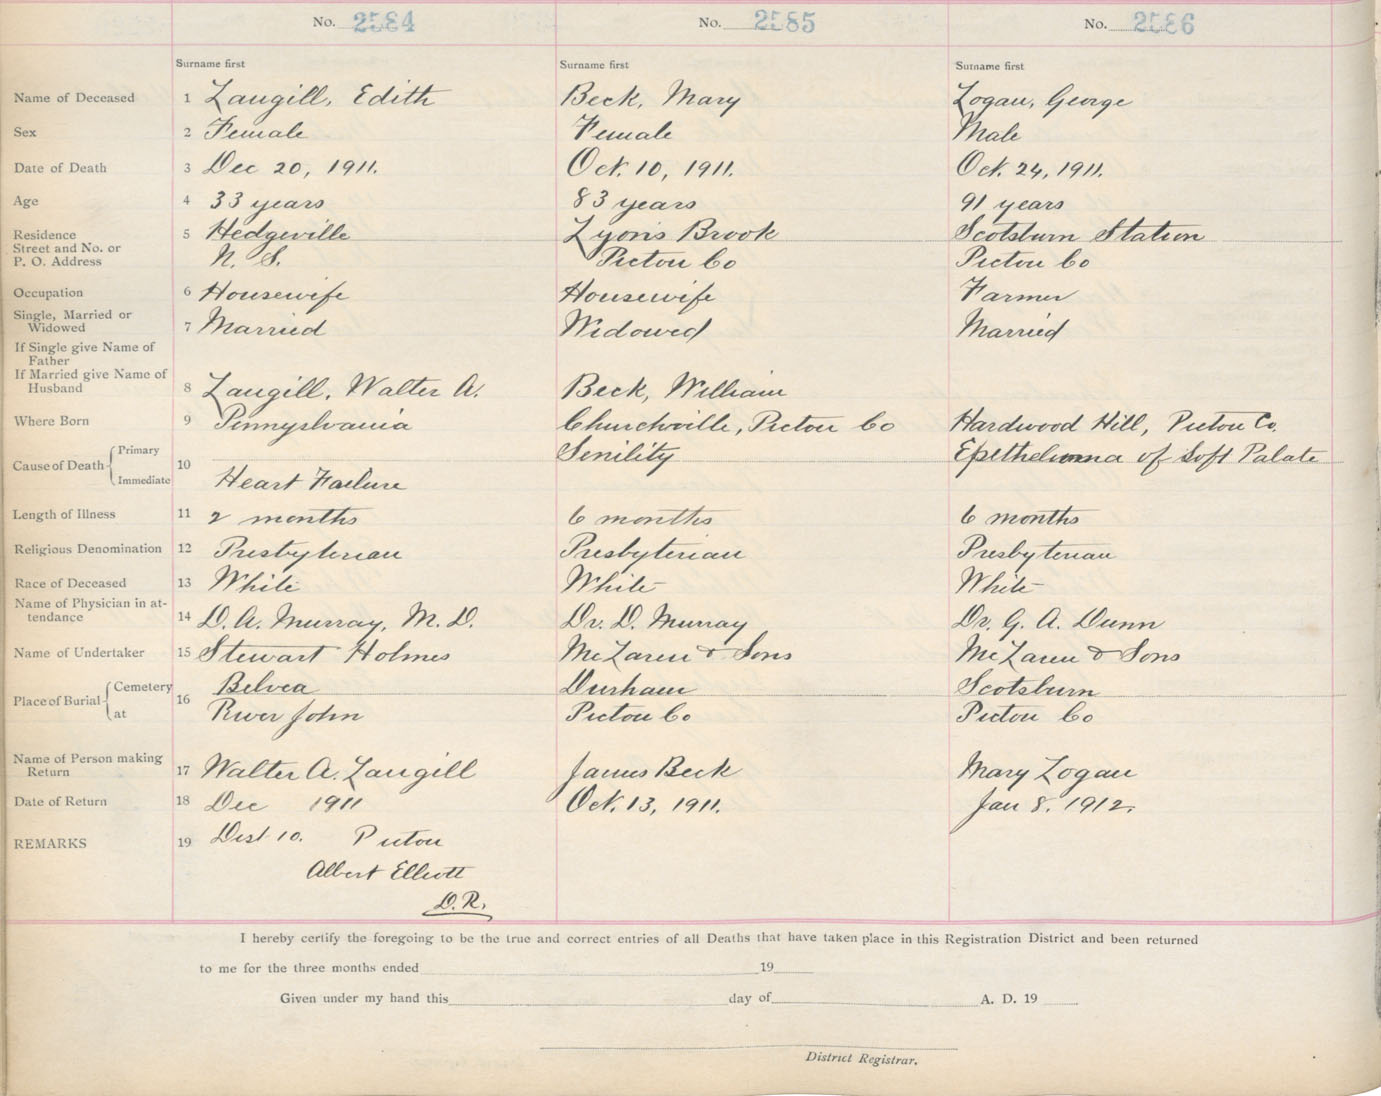 No. 2584 No. 2585 No. 2586
Surname first Surname first Surname first
Name of Deceased 1 Langill, Edith Beck, Mary Logan, George
Sex 2 Female Female Male
Date of Death 3 Dec 20, 1911. Oct. 10, 1911. Oct. 24, 1911.
Age 4 33 years 83 years 91 years
Residence 5 Hedgeville Lyons Brook Scotsburn Station
Street and No. or
P. O. Address N. S. Pictou Co Pictou Co
Occupation 6 Housewife Housewife Farmer
Single, Married or
Widowed 7 Married Widowed Married
If Single give Name of
Father
If Married give Name of
Husband 8 Langill, Walter A. Beck, William
Where Born 9 Pennyslvania Churchville, Pictou Co Hardwood Hill, Pictou Co.
Cause of Death Primary 10 Senility Epithelioma of Soft Palate
Immediate Heart Failure
Length of Illness 11 2 months 6 months 6 months
Religious Denomination 12 Presbyterian Presbyterian Presbyterian
Race of Deceased 13 White White White
Name of Physician in at-
tendance 14 D. A. Murray, M. D. Dr. D. Murray Dr. G. A. Dunn
Name of Undertaker 15 Stewart Holmes McLaren & Sons McLaren & Sons
Place of Burial Cemetery 16 Belvea Durham Scotsburn
at River John Pictou Co Pictou Co
Name of Person making
Return 17 Walter A. Langill James Beck Mary Logan
Date of Return 18 Dec 1911 Oct. 13, 1911. Jan 8. 1912.
REMARKS 19 Dist 10. Pictou
Albert Elliott
D.R.
I hereby certify the foregoing to be the true and correct entries of all Deaths that have taken place in this Registration District and been returned
to me for the three months ended 19
Given under my hand this day of A. D. 19
District Registrar.